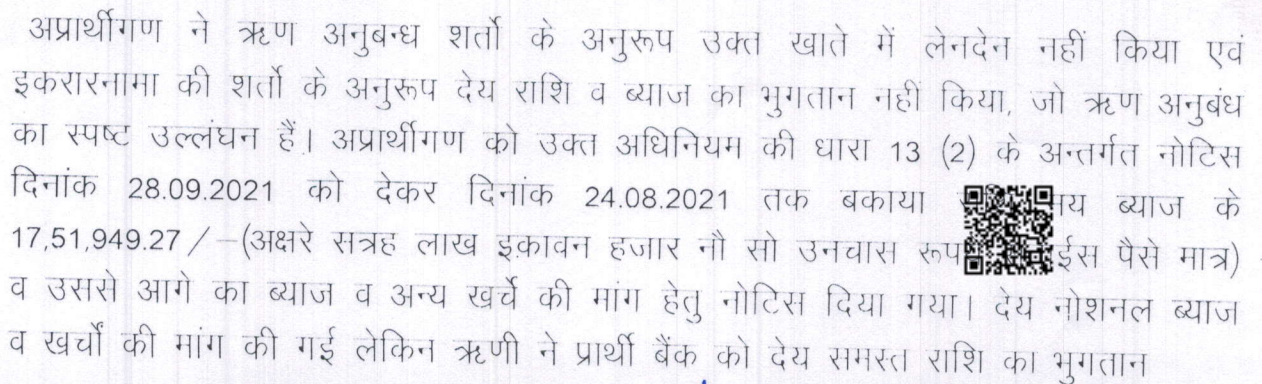 अप्रार्थीगण ने ऋण अनुबन्ध शर्तो के अनुरूप उक्त खाते में लेनदेन नहीं किया एवं
इकरारनामा की शर्तो के अनुरूप देय राशि व ब्याज का भुगतान नहीं किया, जो ऋण अनुबंध
का स्पष्ट उल्लंघन हैं। अप्रार्थीगण को उक्त अधिनियम की धारा 13 (2) के अन्तर्गत नोटिस
दिनांक 28.09.2021 को देकर दिनांक 24.08.2021 तक बकाया ब्याज के
17,51,949.27 / –(अक्षरे सत्रह लाख इक़ावन हजार नौ सो उनचास पैसे मात्र)
व उससे आगे का ब्याज व अन्य खर्चे की मांग हेतु नोटिस दिया गया। देय नोशनल ब्याज
व खर्चों की मांग की गई लेकिन ऋणी ने प्रार्थी बैंक को देय समस्त राशि का भुगतान